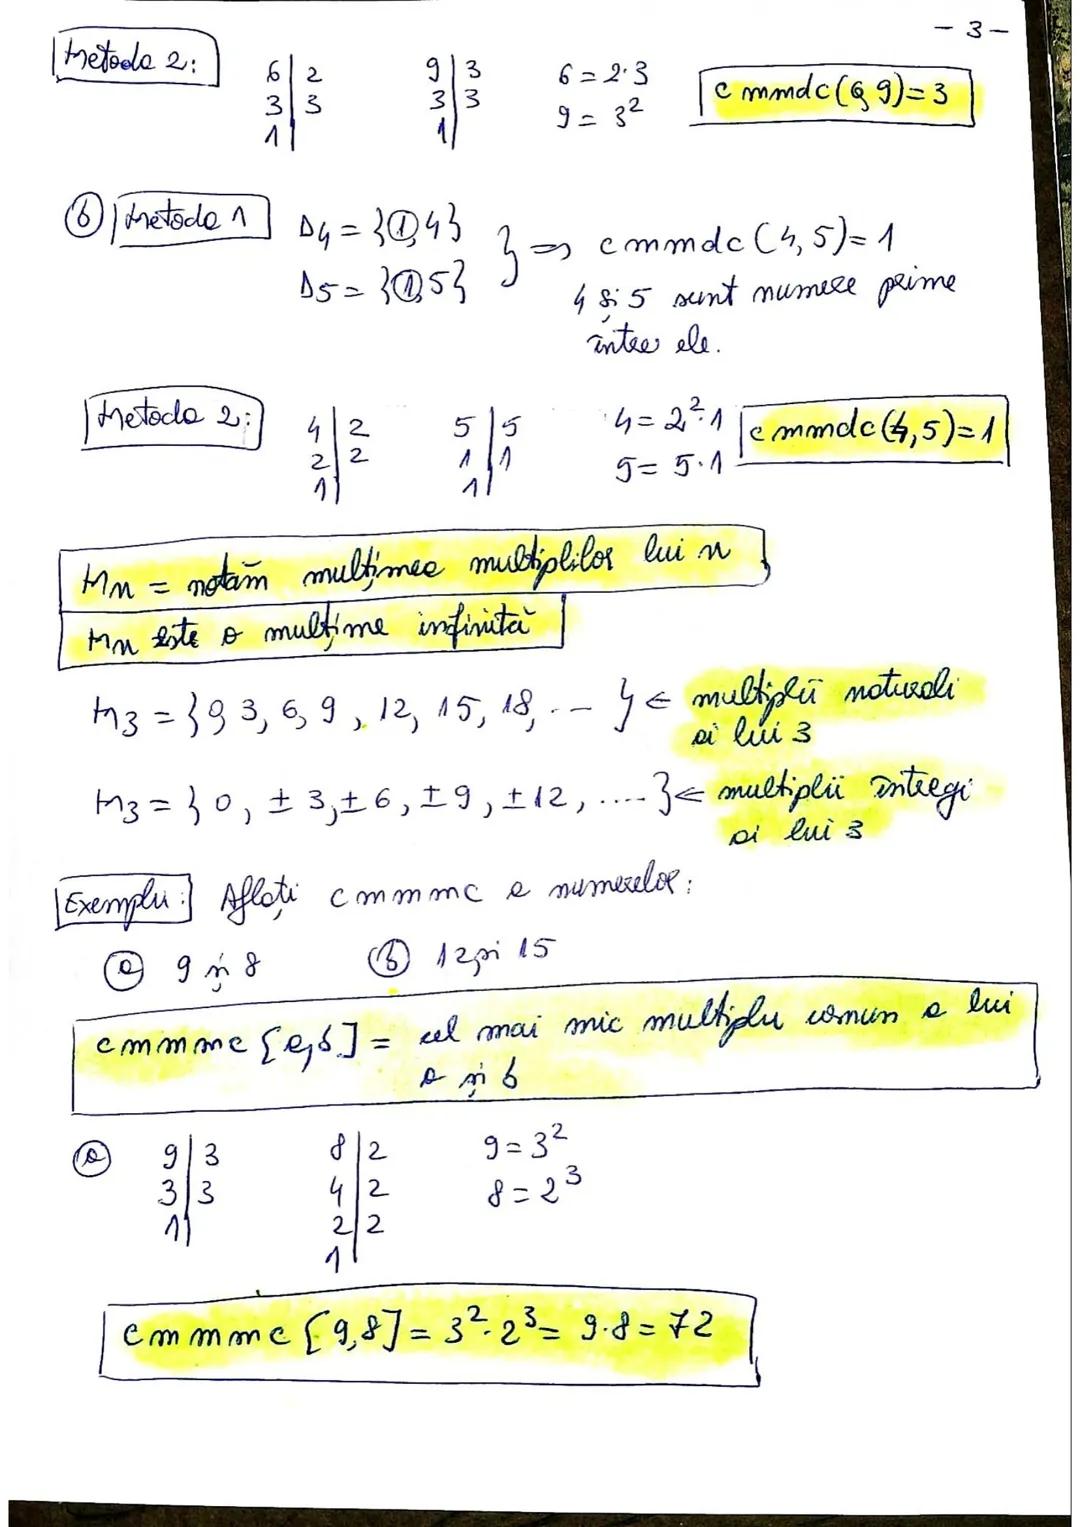 - 3 -
Metoda 2:
6 | 2
3 | 3
1 |
9 | 3
3 | 3
1 |
6 = 2·3
9 = 3²
c mmdc (6, 9) = 3
b) Metoda 1
D4 = {1, 4}
D5 = {1, 5}
} => c mmdc (4, 5) = 1
4 și 5 sunt numere prime
între ele.
Metoda 2:
4 | 2
2 | 2
1 |
5 | 5
1 | 1
1 |
4 = 2²·1
5 = 5·1
c mmdc (4, 5) = 1
Mn = notăm mulțimea multiplilor lui n
Mn este o mulțime infinită
M3 = {0, 3, 6, 9, 12, 15, 18, ... } ← multiplii naturali
ai lui 3
M3 = {0, ±3, ±6, ±9, ±12, ....} ← multiplii întregi
ai lui 3
Exemplu: Aflați c m m m c a numerelor:
a) 9 și 8 b) 12 și 15
c m m m c [a, b] = cel mai mic multiplu comun a lui
a și b
a)
9 | 3
3 | 3
1 |
8 | 2
4 | 2
2 | 2
1 |
9 = 3²
8 = 2³
c m m m c [9, 8] = 3²·2³ = 9·8 = 72